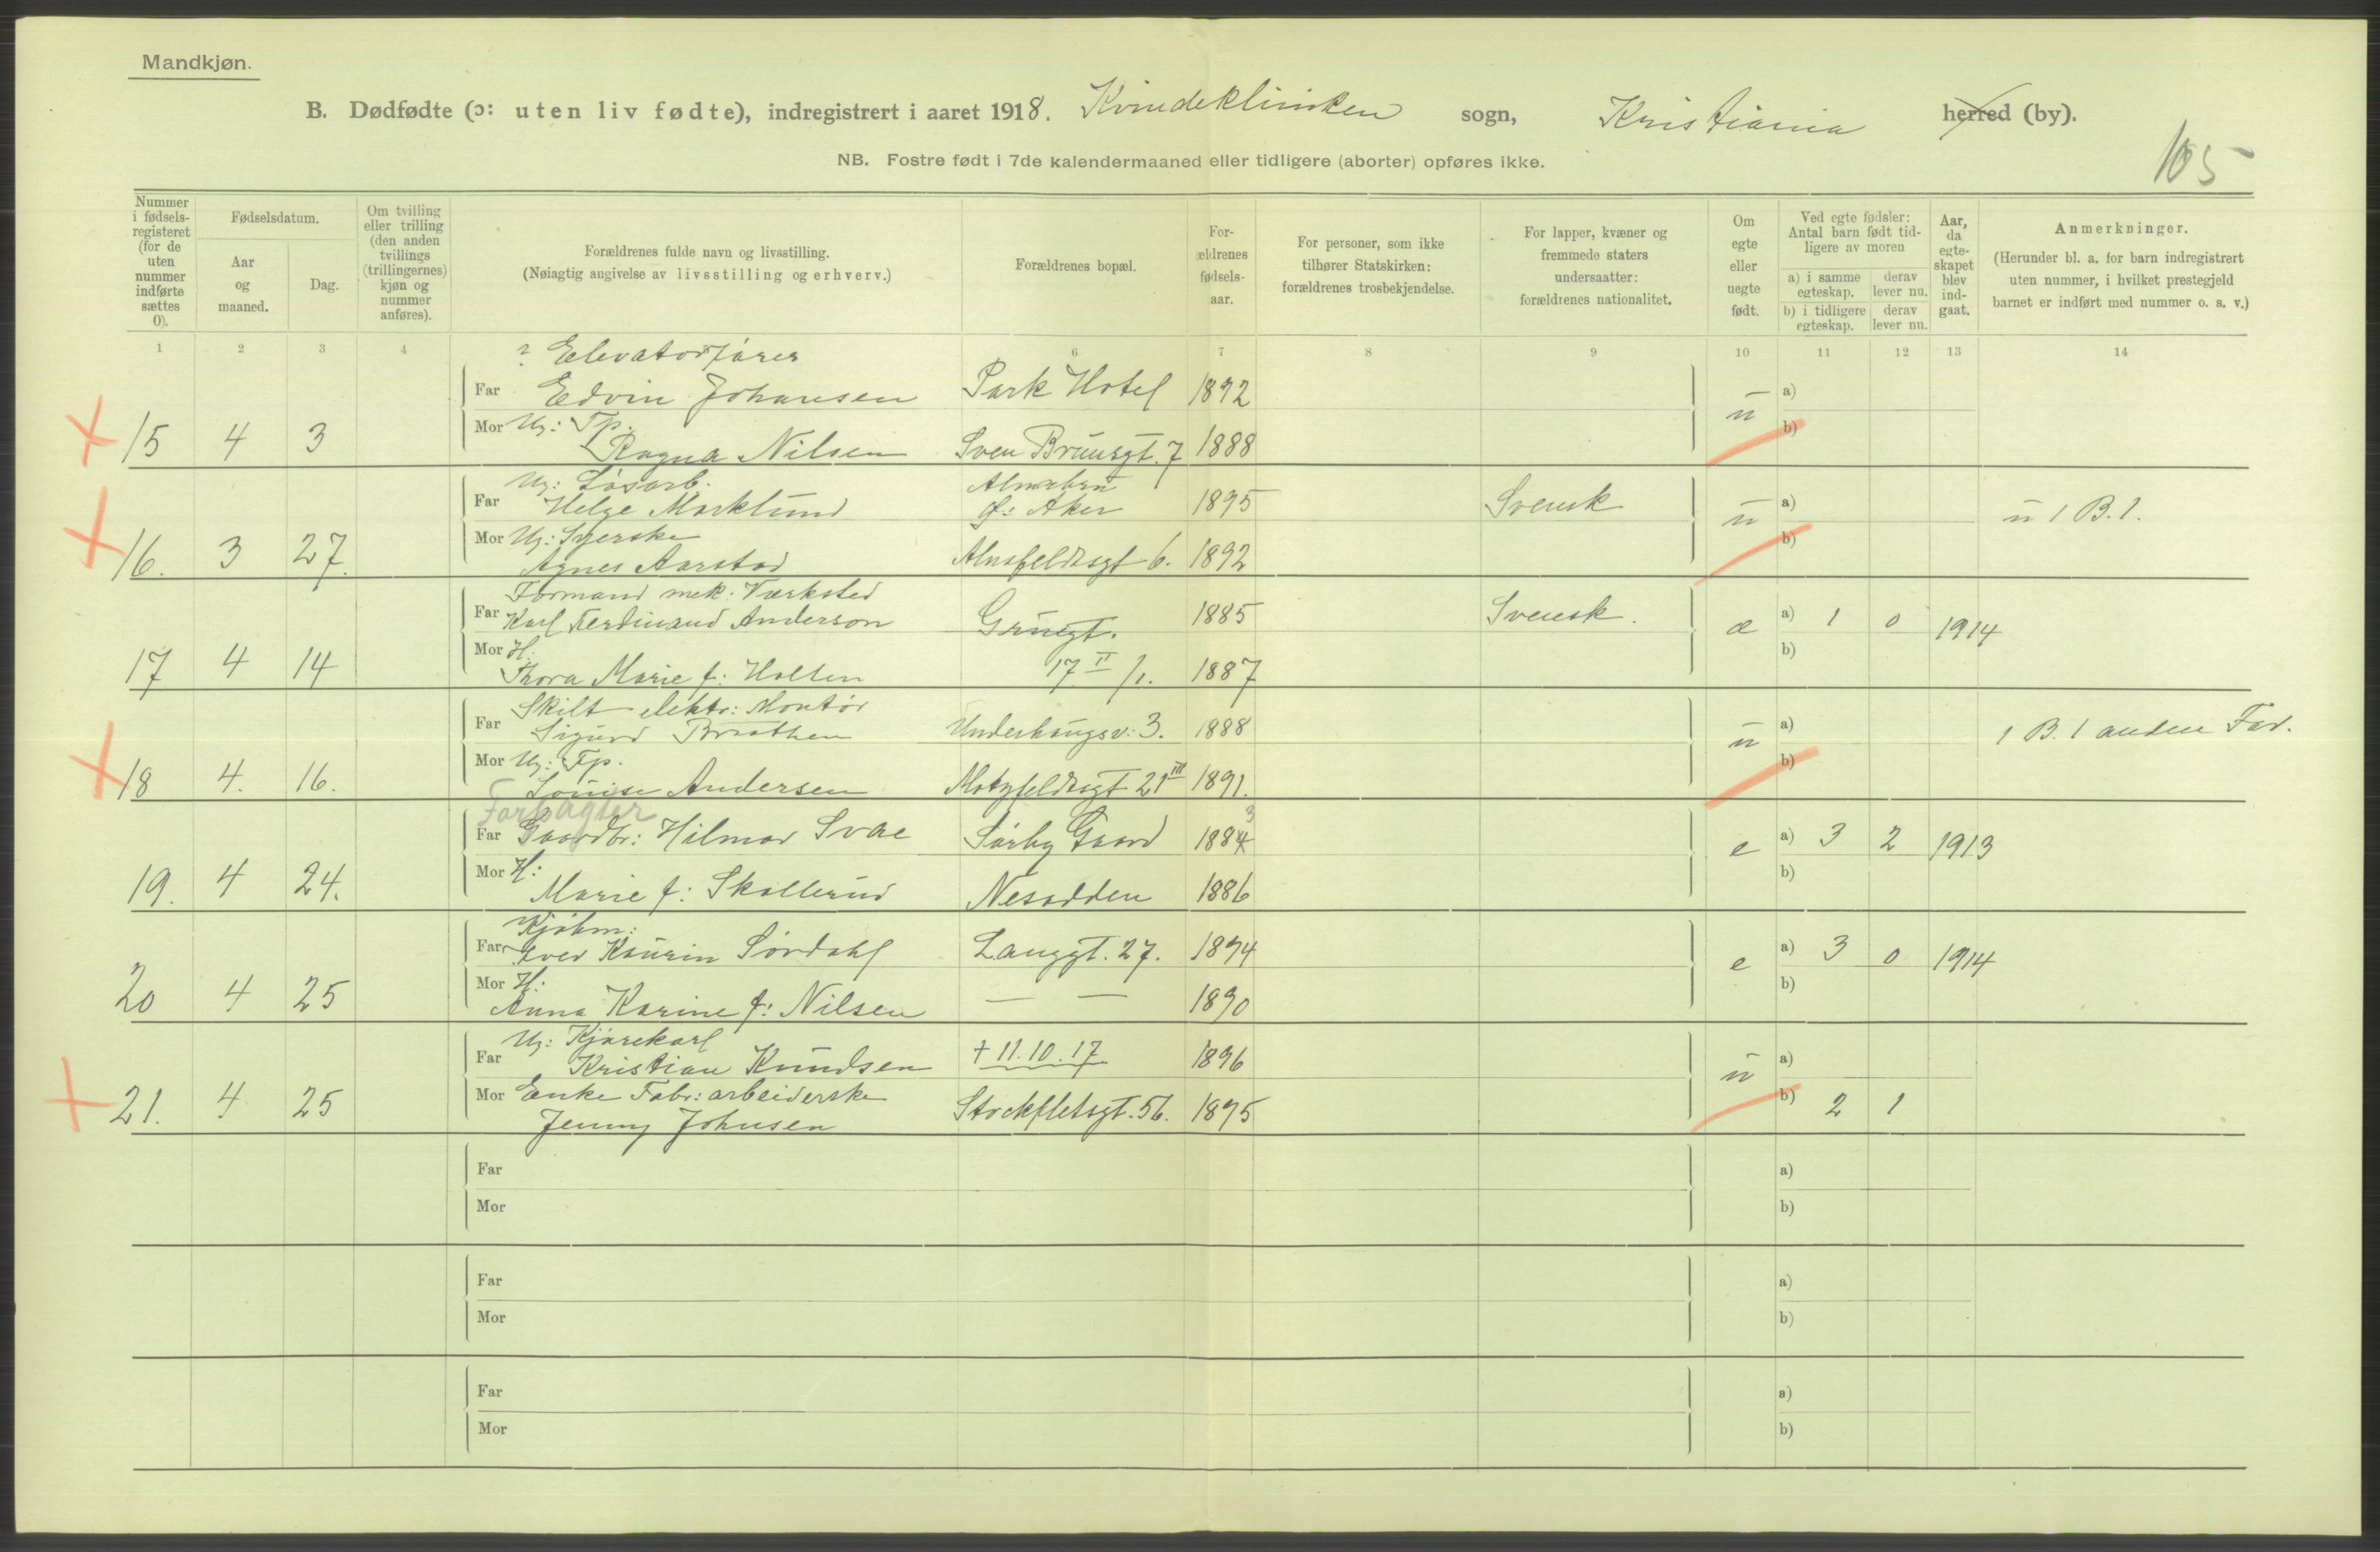 Mandkjøn.
B. Dødfødte (ɔ: uten liv fødte), indregistrert i aaret 1918. Kvindeklinikken sogn, Kristiania herred (by).
NB. Fostre født i 7de kalendermaaned eller tidligere (aborter) opføres ikke.
105
Nummer i fødsels-registeret (for de uten nummer indførte sættes 0).
Fødselsdatum.
Aar og maaned.
Dag.
Om tvilling eller trilling (den anden tvillings (trillingernes) kjøn og nummer anføres).
Forældrenes fulde navn og livsstilling.
(Nøiagtig angivelse av livsstilling og erhverv.)
Forældrenes bopæl.
For-ældrenes fødsels-aar.
For personer, som ikke tilhører Statskirken: forældrenes trosbekjendelse.
For lapper, kvæner og fremmede staters undersaatter: forældrenes nationalitet.
Om egte eller uegte født.
Ved egte fødsler: Antal barn født tid-ligere av moren
a) i samme egteskap.
derav lever nu.
b) i tidligere egteskap.
derav lever nu.
Aar, da egte-skapet blev ind-gaat.
Anmerkninger.
(Herunder bl. a. for barn indregistrert uten nummer, i hvilket prestegjeld barnet er indført med nummer o. s. v.)
1 2 3 4 6 7 8 9 10 11 12 13 14
? Elevatorfører
Far Edvin Johansen Park Hotel 1892 a)
15 4 3 Mor Ug: Tp. ü b)
Ragna Nilsen Sven Brunsgt. 7 1888
Ug: Løsarb. Alnabru
Far Helge Marklund p: Aker 1895 Svensk a) ü 1 B. 1.
16. 3 27. Mor Ug: Syerske ü b)
Agnes Aarstad Almsfeldtsgt 6. 1892
Formand mek: Værksted
Far Karl Ferdinand Anderson Grünegt. 1885 Svensk. æ a) 1 0 1914
17 4 14 Mor H: b)
Thora Marie f: Holten 17 II /1. 1887
Skilt elektr: Montør
Far Sigurd Braathen Underhaugsv: 3. 1888 ü a) 1 B. 1 anden Far.
18 4. 16. Mor Ug: Tp. b)
Louise Andersen Motzfeldtsgt 21 III 1891.
Forpagter
Far Gaardbr: Hilmar Svae Sørby Gaard 1884 3 e a) 3 2 1913
19. 4 24. Mor H: b)
Marie f: Skollerud Nesodden 1886
Kjøbm:
Far Iver Kaurin Sørdahl Langgt. 27. 1894 e a) 3 0 1914
20 4 25 Mor H: b)
Anna Karine f: Nilsen — — 1890
Ug: Kjørekarl
Far Kristian Knudsen † 11.10.17 1896 ü a)
21. 4 25 Mor Enke Fabr: arbeiderske b) 2 1
Jenny Johnsen Stockfletsgt. 56. 1895
Far a)
Mor b)
Far a)
Mor b)
Far a)
Mor b)